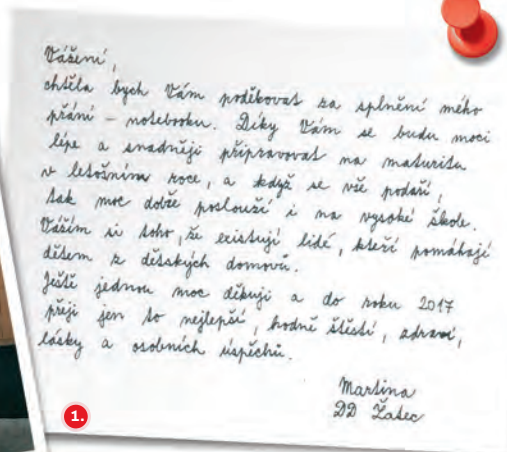 Vážení,
chtěla bych Vám poděkovat za splnění mého
přání - notebooku. Díky Vám se budu moci
lépe a snadněji připravovat na maturitu
v letošním roce, a když se vše podaří,
tak moc dobře poslouží i na vysoké škole.
Vážím si toho, že existují lidé, kteří pomáhají
dětem z dětských domovů.
Ještě jednou moc děkuji a do roku 2017
přeji jen to nejlepší, hodně štěstí, zdraví,
lásky a osobních úspěchů.
Martina
DD Žatec
1.